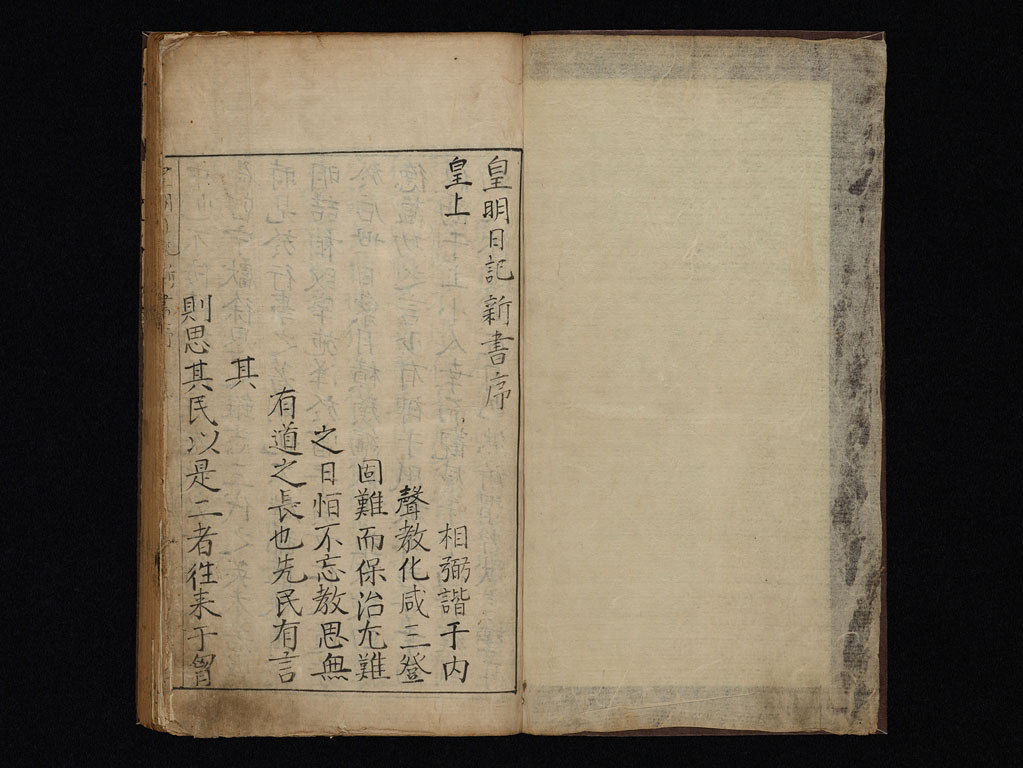 皇明日記新書序
皇上
相弼諧于内
聲教化咸三登
固難而保治尤難
之日怕不忘教思無
有道之長也先民有言
其
則思其民以是二者往来于胷